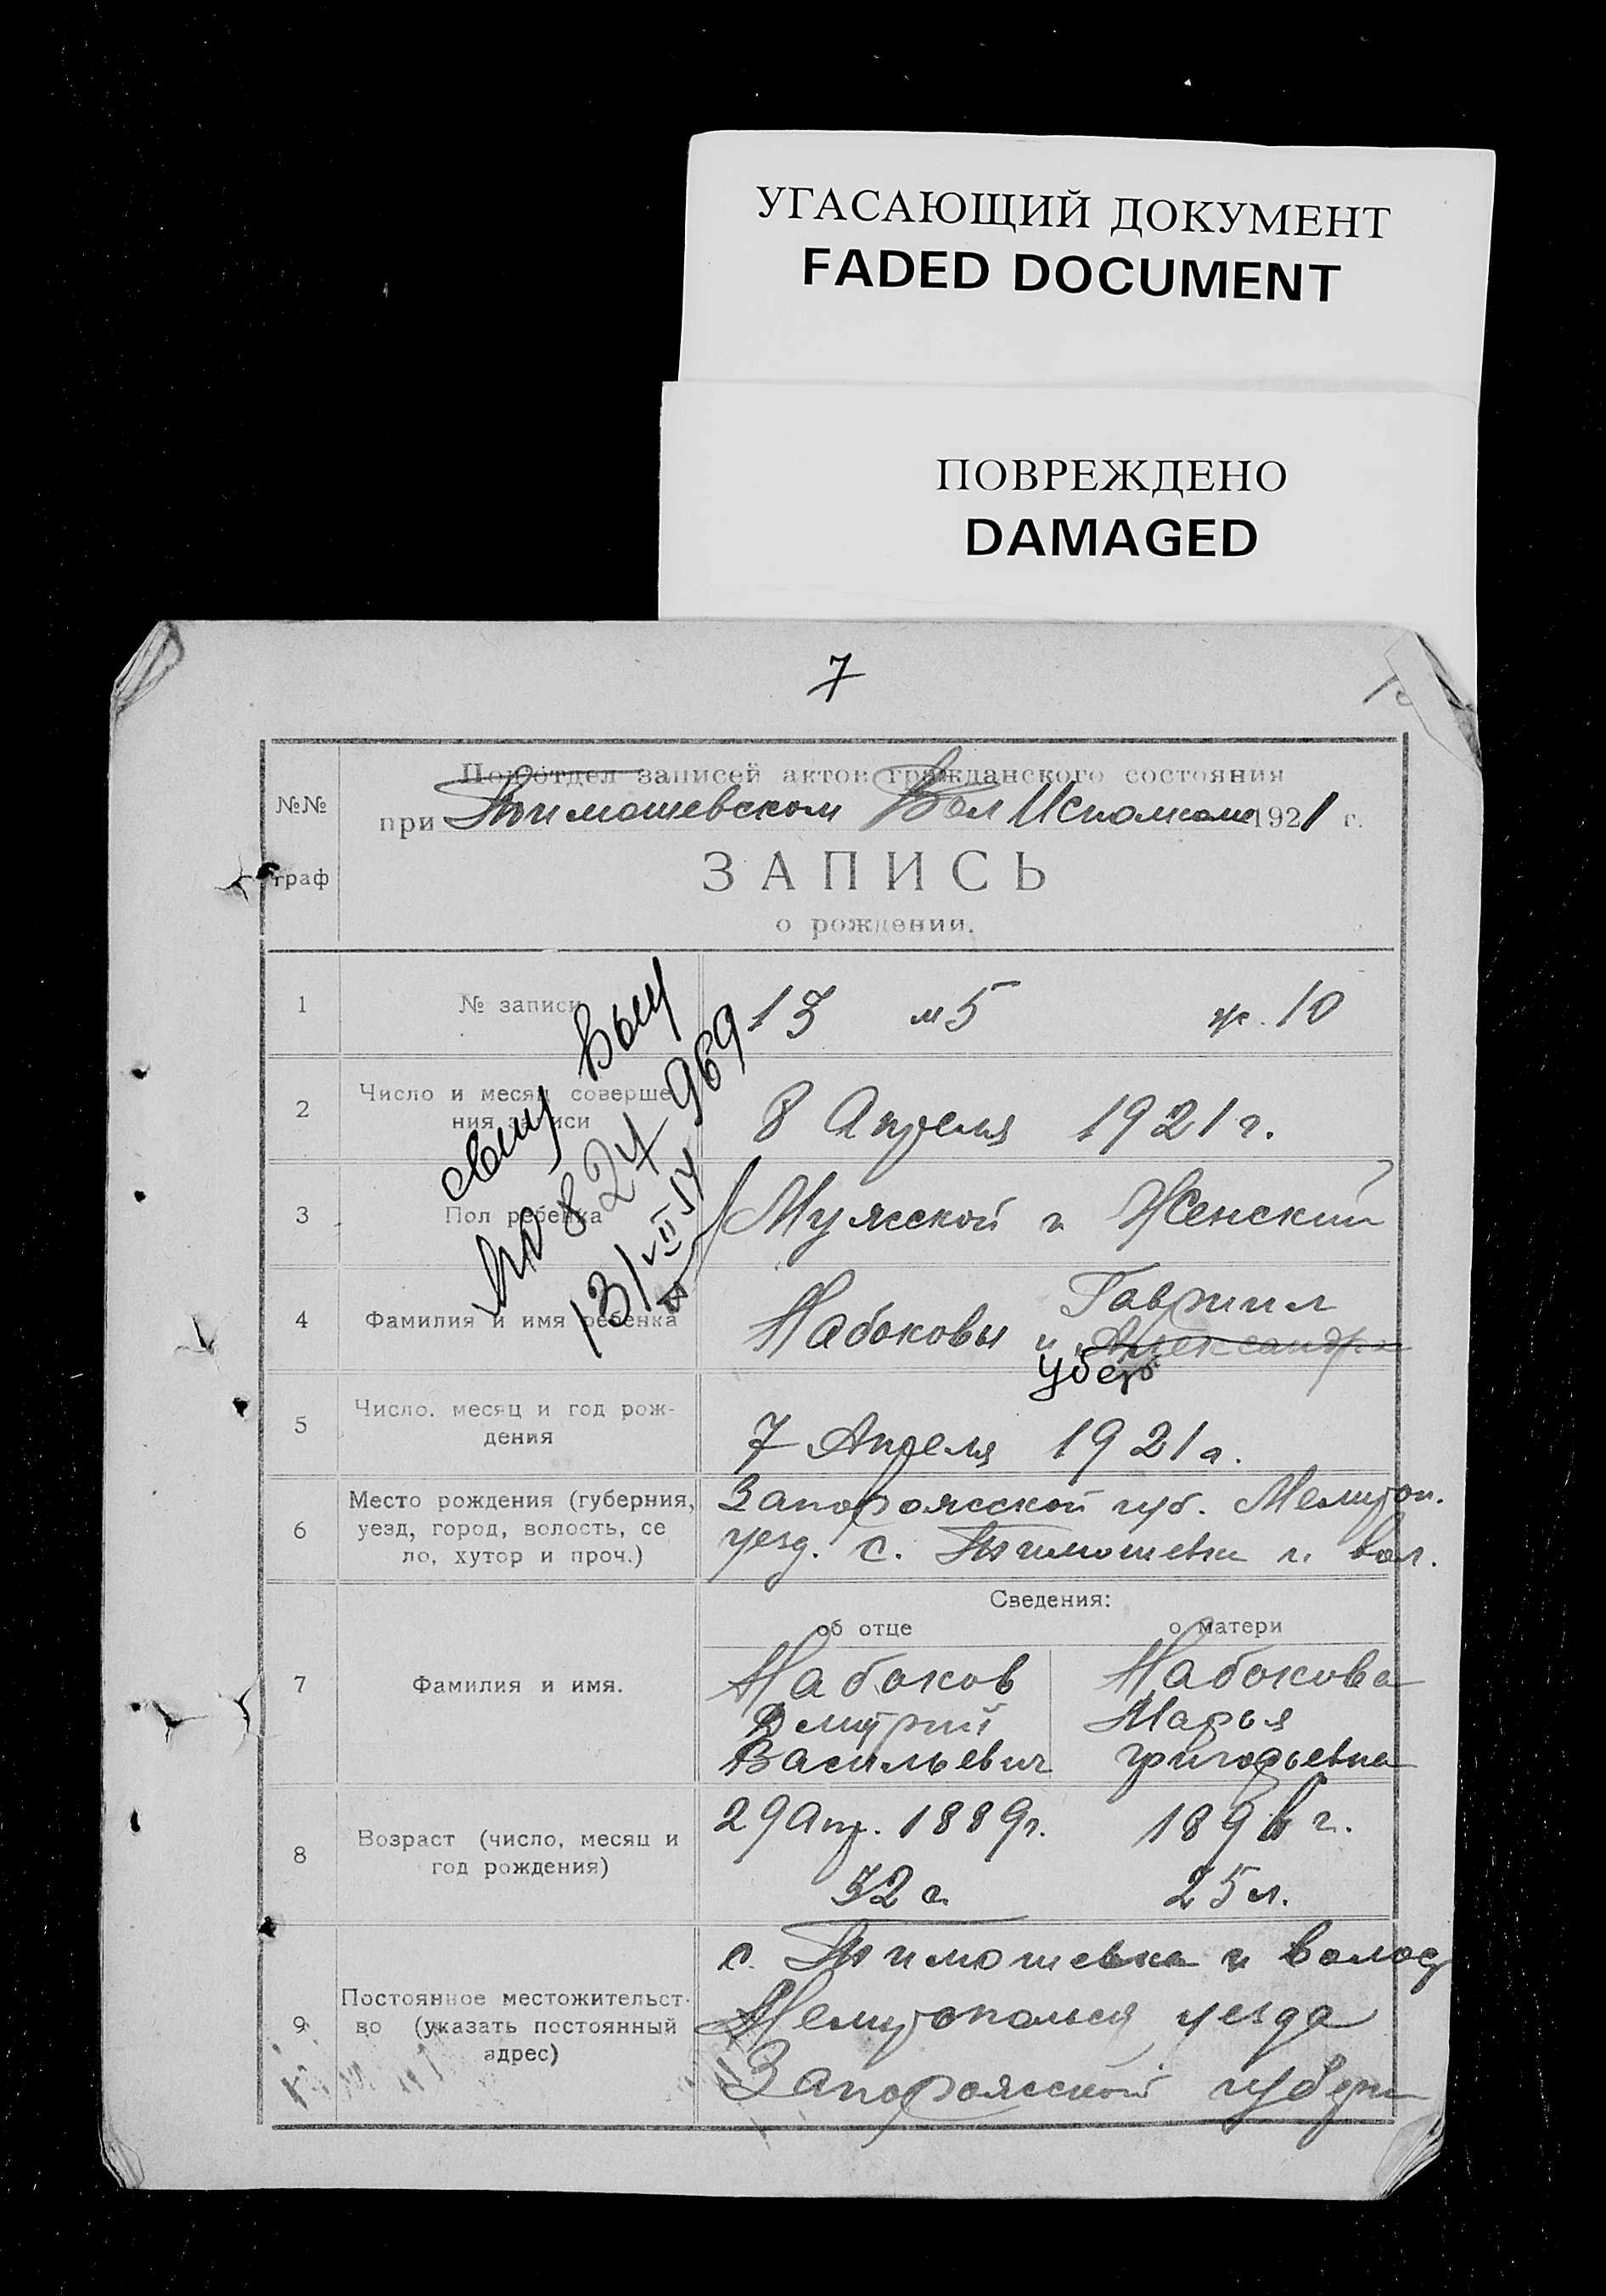 УГАСАЮЩИЙ ДОКУМЕНТ
FADED DOCUMENT
ПОВРЕЖДЕНО
DAMAGED
7
№№
граф
Подотдел записей актов гражданского состояния
при Тимошевском Вол Исполкоме 1921 г.
ЗАПИСЬ
о рождении.
1 № записи 13 м 5 ж. 10
2 Число и месяц соверше
ния записи
8 Апреля 1921 г.
3 Пол ребенка Мужской и Женский
4 Фамилия и имя ребенка Набоковы Гавриил
и Александра
5 Число, месяц и год рож-
дения
7 Апреля 1921 г.
6 Место рождения (губерния,
уезд, город, волость, се
ло, хутор и проч.)
Запорожской губ. Мелитоп.
уезд. с. Тимошевки и вол.
Сведения:
об отце о матери
7 Фамилия и имя.
Набоков
Дмитрий
Васильевич
Набокова
Марья
Григорьевна
8 Возраст (число, месяц и
год рождения)
29 Апр. 1889 г.
32 г.
189 г.
25 л.
9 Постоянное местожительст-
во (указать постоянный
адрес)
с. Тимошевка и волос
Мелитопольск уезда
Запорожской губерн
выд
969
13/VII